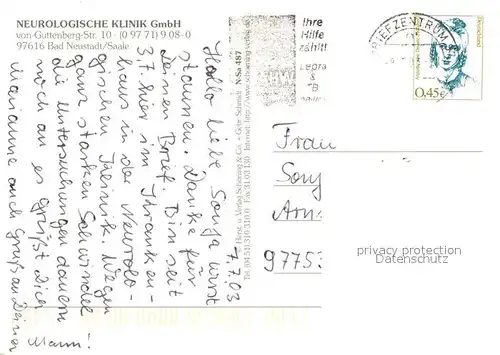 NEUROLOGISCHE KLINIK GmbH
von-Guttenberg-Str. 10 · (0 97 71) 9 08-0
97616 Bad Neustadt/Saale
7.7.03
Hallo liebe Sonja wirst
staunen. Danke für
Deinen Brief. Bin seit
37 hier im Kranken-
haus in der Neurolo-
gischen Kleinik. Wegen
ganz starken Schwindel
die Untersuchungen dauern
noch an es grüßt Dich
Marianne auch Gruß an Deinen
Mann!
N-Sa 487
Ihre
Hilfe
zählt!
Lepra
&
TB
BRIEFZENTRUM
Deutschland
0,45€
Frau
Sonj
97753
privacy protection
Datenschutz